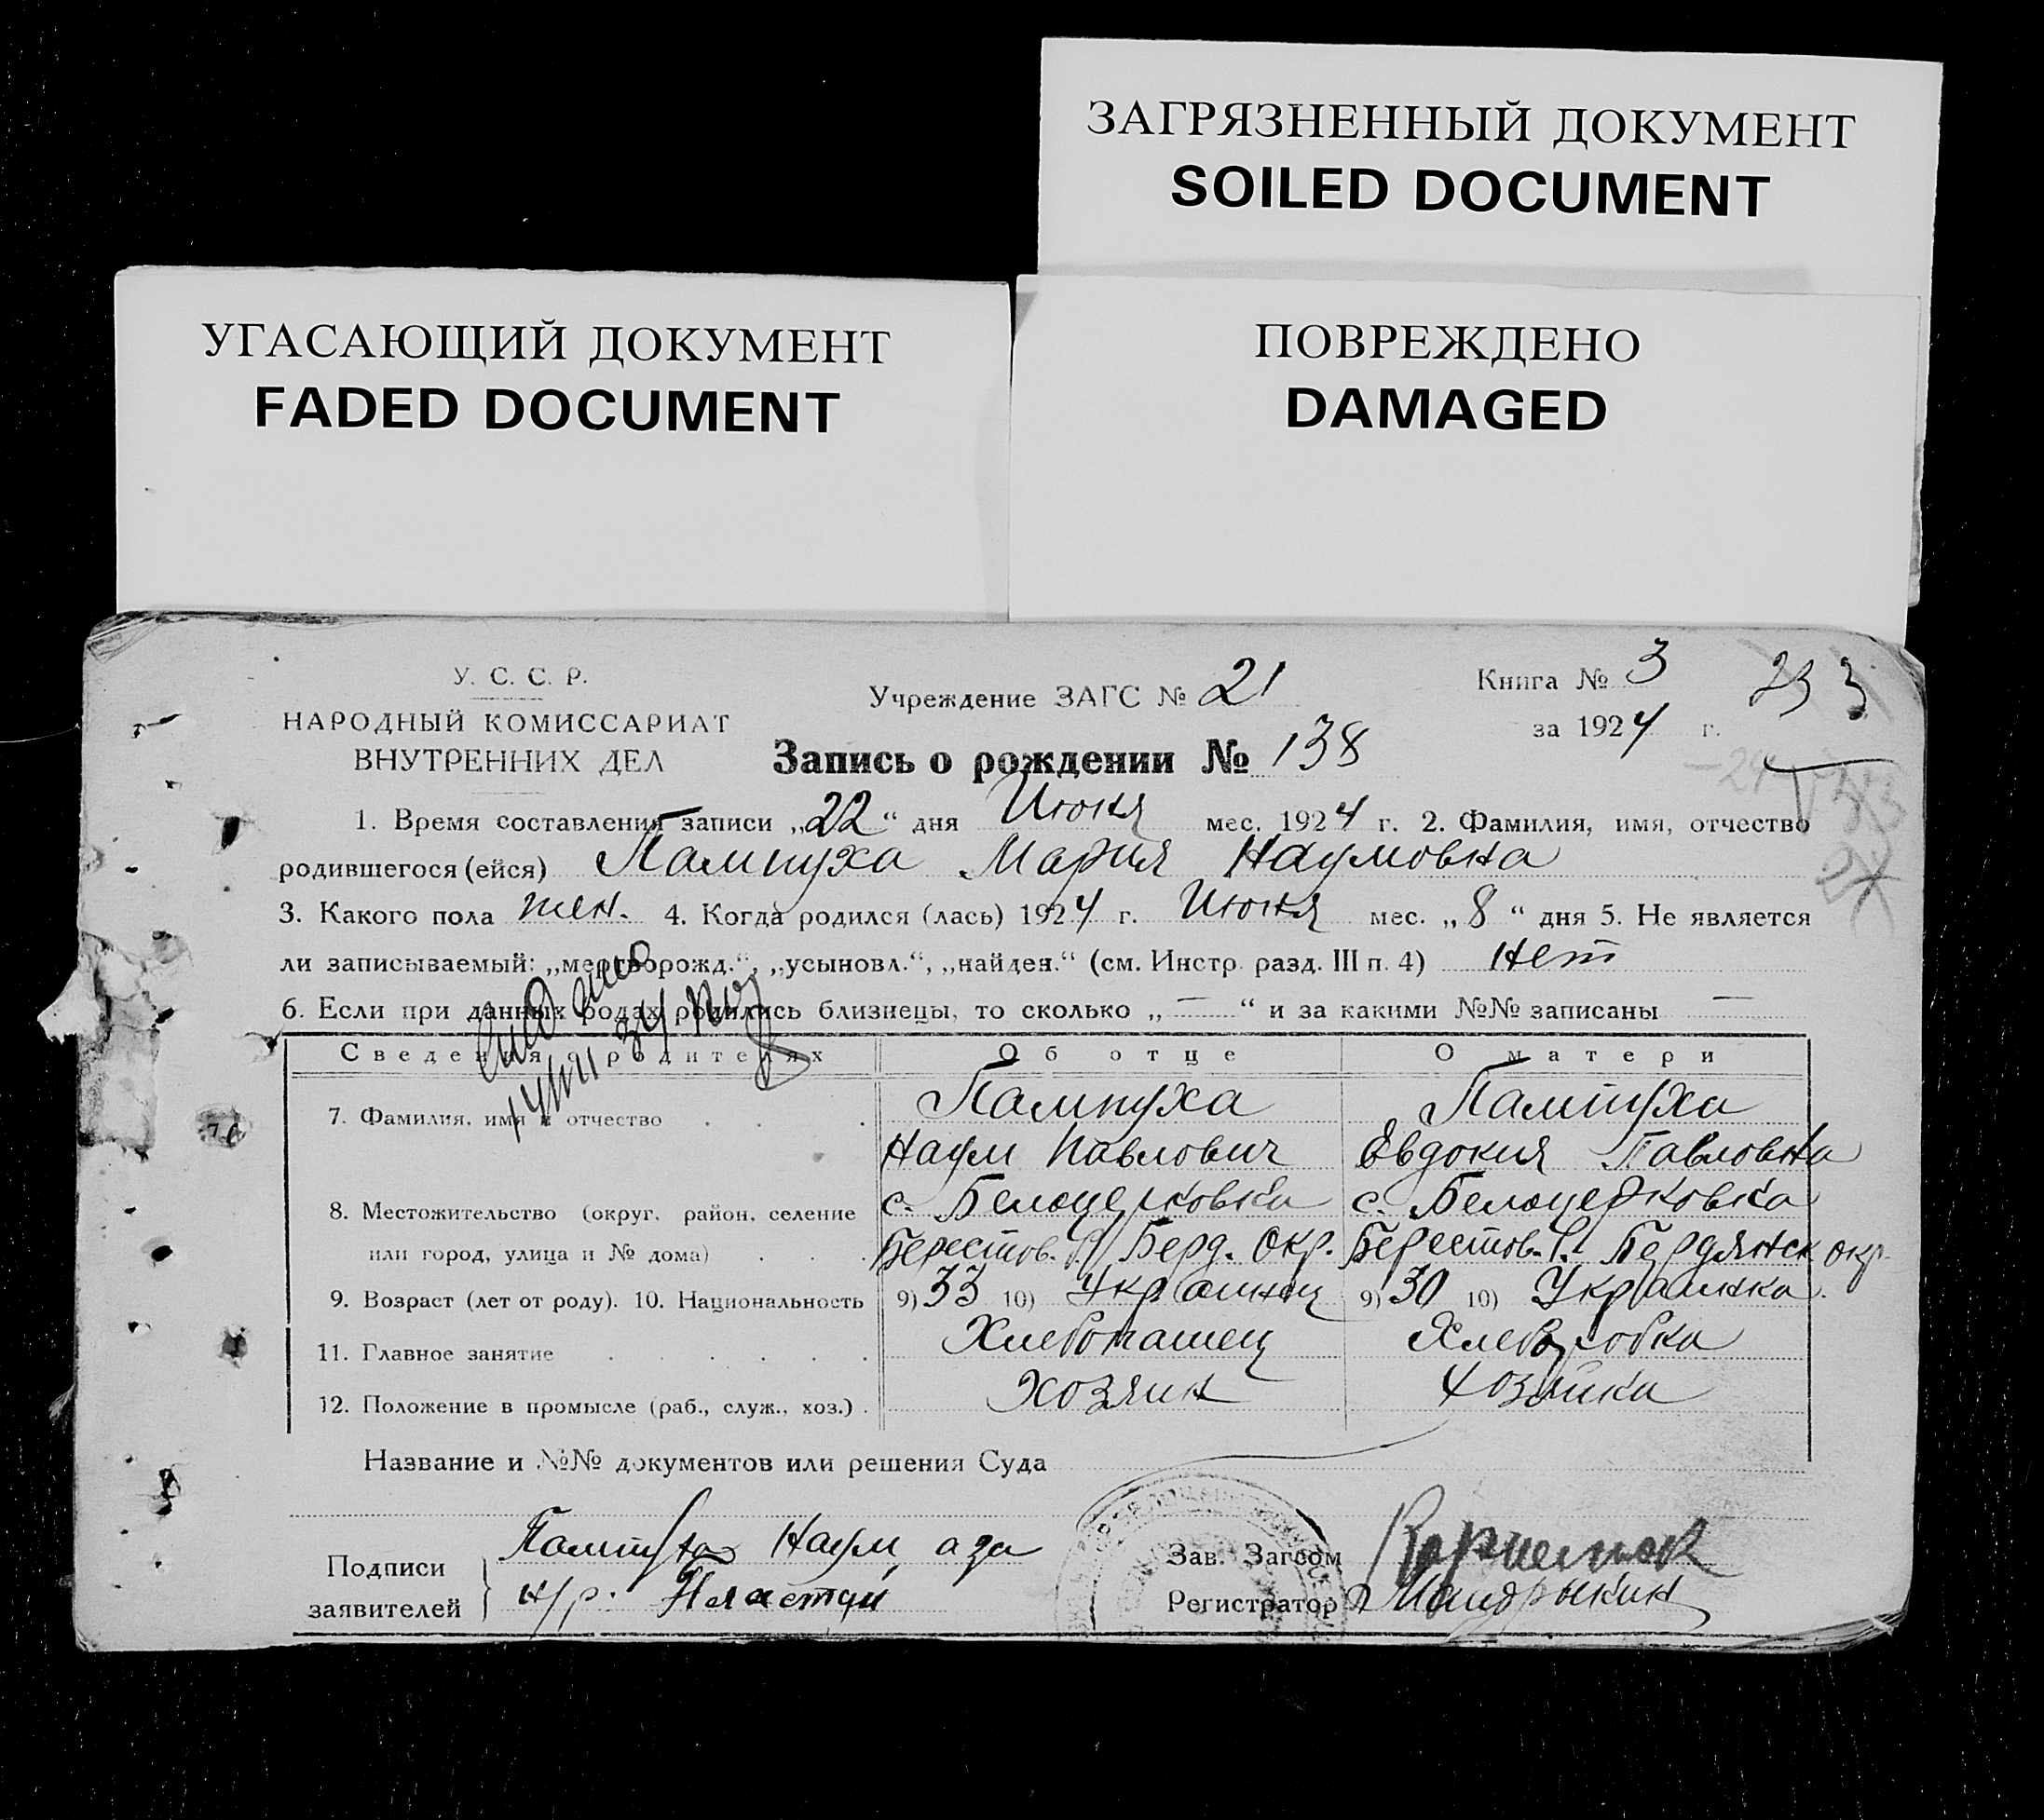 ЗАГРЯЗНЕННЫЙ ДОКУМЕНТ
SOILED DOCUMENT
УГАСАЮЩИЙ ДОКУМЕНТ
FADED DOCUMENT
ПОВРЕЖДЕНО
DAMAGED
У. С. С. Р.
НАРОДНЫЙ КОМИССАРИАТ
ВНУТРЕННИХ ДЕЛ
Учреждение ЗАГС № 21
Книга № 3
за 1924 г.
233
Запись о рождении № 138
1. Время составления записи „22“ дня Июня мес. 1924 г. 2. Фамилия, имя, отчество
родившегося (ейся) Пампуха Мария Наумовна
3. Какого пола жен. 4. Когда родился (лась) 1924 г. Июня мес. „8“ дня 5. Не является
ли записываемый: „мертворожд.“, „усыновл.“, „найден.“ (см. Инстр. разд. III п. 4) Нет
6. Если при данных родах родились близнецы, то сколько „—“ и за какими №№ записаны —
Сведения о родителях Об отце О матери
7. Фамилия, имя и отчество Пампуха Пампуха
Наум Павлович Евдокия Павловна
8. Местожительство (округ, район, селение с. Белоцерковка с. Белоцерковка
или город, улица и № дома) Берестов. Р. Берд. Окр. Берестов. Р. Бердянск окр.
9. Возраст (лет от роду). 10. Национальность 9) 33 10) Украинец 9) 30 10) Украинка
11. Главное занятие Хлебопашец Хлеборобка
12. Положение в промысле (раб., служ., хоз.) Хозяин Хозяйка
Название и №№ документов или решения Суда
Подписи
заявителей
Пампуха Наум, а за
н/р.
Зав. Загсом
Регистратор Мандрыкин